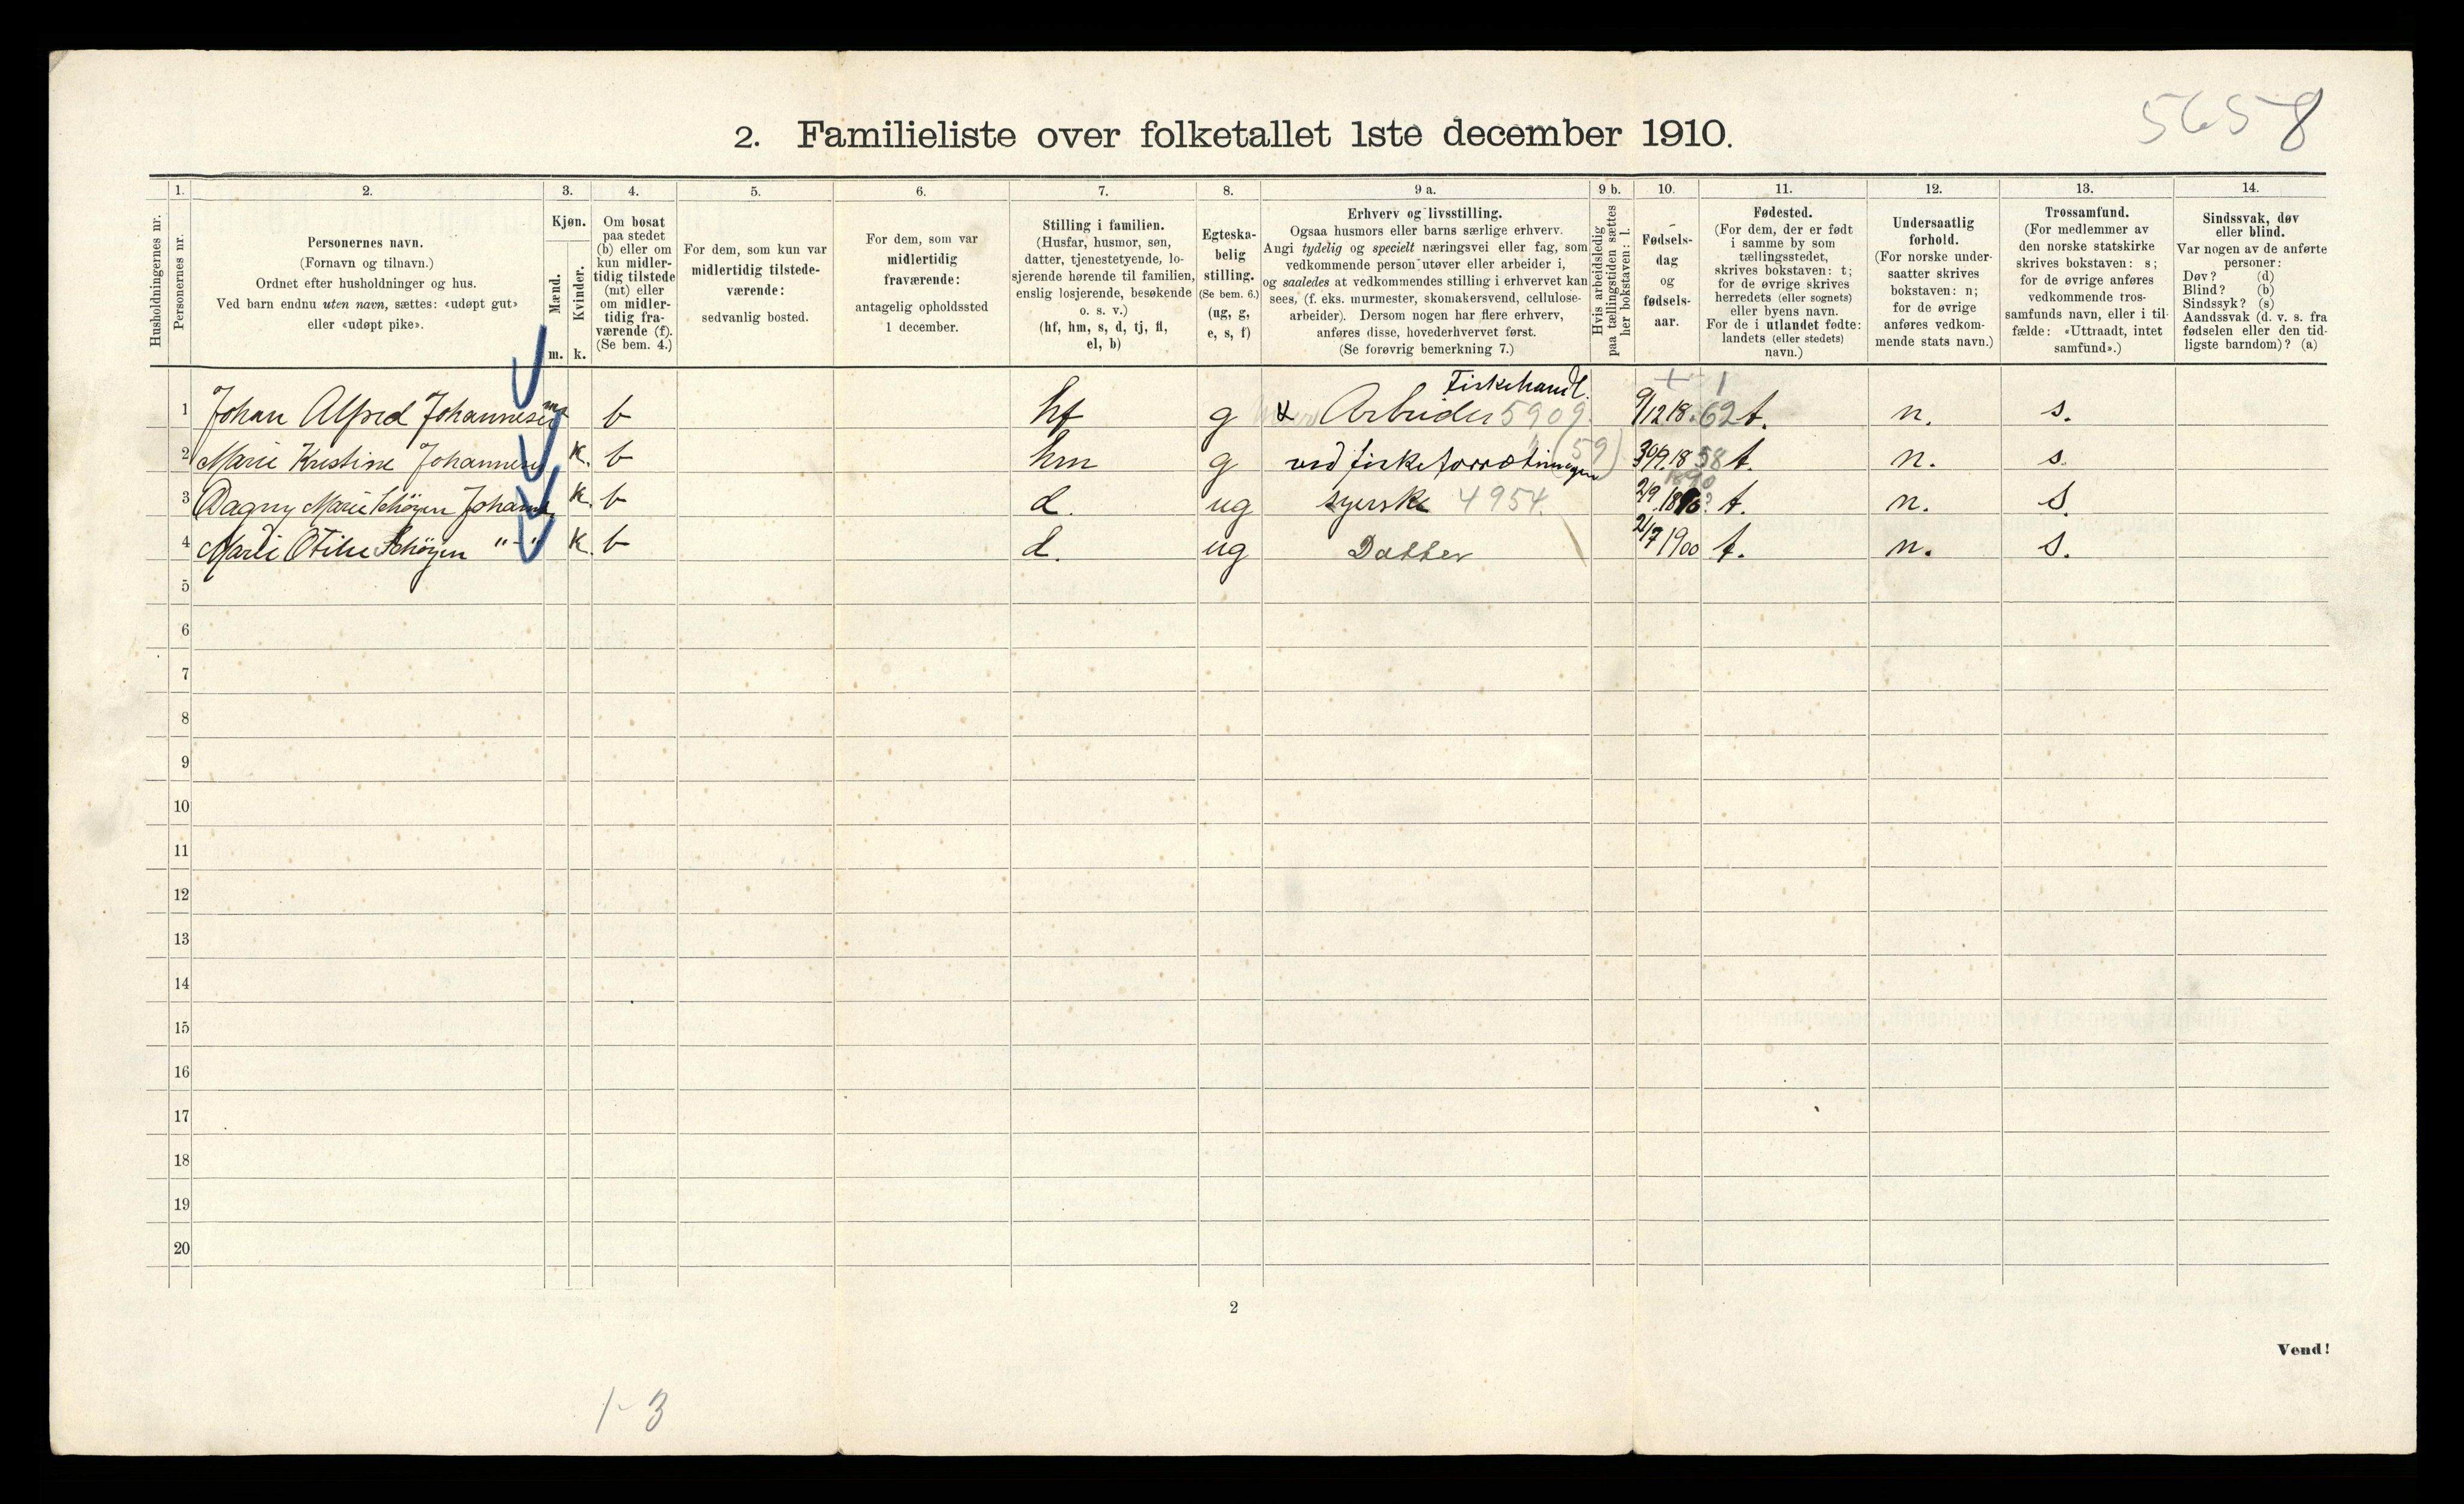 5658
2. Familieliste over folketallet 1ste december 1910.
Husholdningernes nr.
1.
Personernes nr.
2.
Personernes navn.
(Fornavn og tilnavn.)
Ordnet efter husholdninger og hus.
Ved barn endnu uten navn, sættes: «udøpt gut»
eller «udøpt pike».
3.
Kjøn.
Mænd.
Kvinder.
m. k.
4.
Om bosat
paa stedet
(b) eller om
kun midler-
tidig tilstede
(mt) eller
om midler-
tidig fra-
værende (f).
(Se bem. 4.)
5.
For dem, som kun var
midlertidig tilstede-
værende:
sedvanlig bosted.
6.
For dem, som var
midlertidig
fraværende:
antagelig opholdssted
1 december.
7.
Stilling i familien.
(Husfar, husmor, søn,
datter, tjenestetyende, lo-
sjerende hørende til familien,
enslig losjerende, besøkende
o. s. v.)
(hf, hm, s, d, tj, fl,
el, b)
8.
Egteska-
belig
stilling.
(Se bem. 6.)
(ug, g,
e, s, f)
9 a.
Erhverv og livsstilling.
Ogsaa husmors eller barns særlige erhverv.
Angi tydelig og specielt næringsvei eller fag, som
vedkommende person utøver eller arbeider i,
og saaledes at vedkommendes stilling i erhvervet kan
sees, (f. eks. murmester, skomakersvend, cellulose-
arbeider). Dersom nogen har flere erhverv,
anføres disse, hovederhvervet først.
(Se forøvrig bemerkning 7.)
9 b.
Hvis arbeidsledig
paa tællingstiden sættes
her bokstaven: l.
10.
Fødsels-
dag
og
fødsels-
aar.
11.
Fødested.
(For dem, der er født
i samme by som
tællingsstedet,
skrives bokstaven: t;
for de øvrige skrives
herredets (eller sognets)
eller byens navn.
For de i utlandet fødte:
landets (eller stedets)
navn.)
12.
Undersaatlig
forhold.
(For norske under-
saatter skrives
bokstaven: n;
for de øvrige
anføres vedkom-
mende stats navn.)
13.
Trossamfund.
(For medlemmer av
den norske statskirke
skrives bokstaven: s;
for de øvrige anføres
vedkommende tros-
samfunds navn, eller i til-
fælde: «Uttraadt, intet
samfund».)
14.
Sindssvak, døv
eller blind.
Var nogen av de anførte
personer:
Døv? (d)
Blind? (b)
Sindssyk? (s)
Aandssvak (d. v. s. fra
fødselen eller den tid-
ligste barndom)? (a)
Fiskehandl.
1 Johan Alfred Johannesen m b hf g Arbeider 5909 9/12 18 62 t. n. s.
2 Marie Kristine Johannesen k. b hm g ved fiskeforrætningen (59) 30/9.18 58 t. n. s.
1890
3 Dagny Marie Schöyen Johans k. b d. ug syerske 4954. 2/9.18 ? t. n. s.
4 Marie Otilie Schöyen "-" k. b d. ug Datter 21/7 1900 t. n. s.
5
6
7
8
9
10
11
12
13
14
15
16
17
18
19
20
2
Vend!
1-3